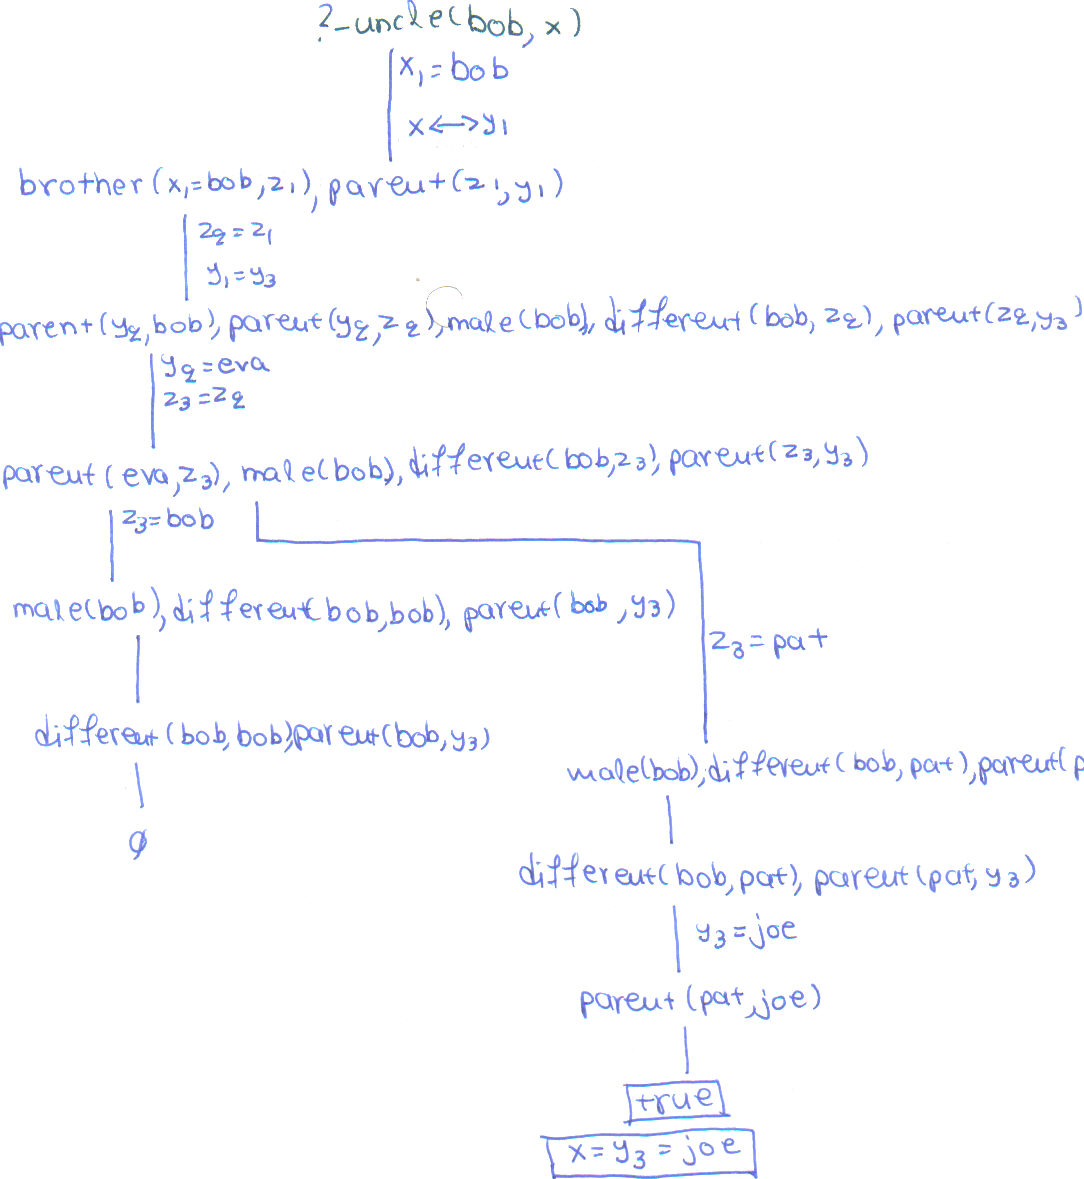 ?-uncle(bob, x)
x₁=bob
x<->y₁
brother(x₁=bob,z₁), parent(z₁,y₁)
z₂=z₁
y₁=y₃
parent(y₂,bob), parent(y₂,z₂), male(bob), different(bob,z₂), parent(z₂,y₃)
y₂=eva
z₃=z₂
parent(eva,z₃), male(bob), different(bob,z₃), parent(z₃,y₃)
z₃=bob
male(bob), different(bob,bob), parent(bob,y₃)
z₃=pat
different(bob,bob)parent(bob,y₃)
male(bob), different(bob, pat), parent(p
∅
different(bob,pat), parent(pat,y₃)
y₃=joe
parent(pat,joe)
true
x=y₃=joe